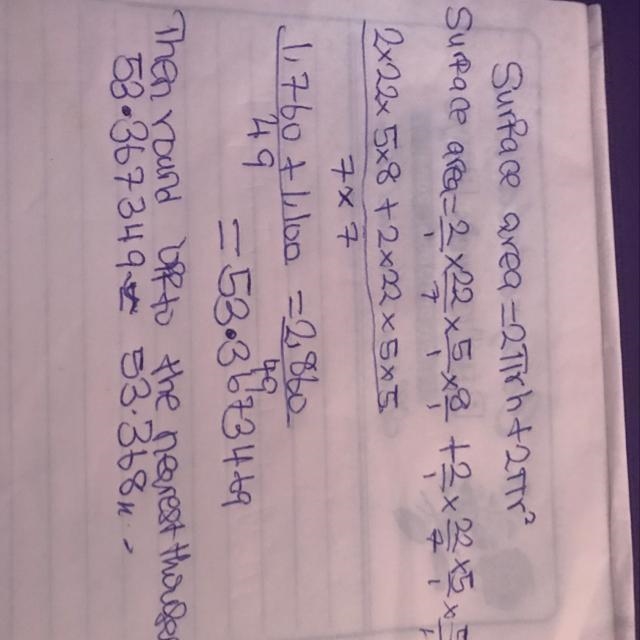 Surface area = 2πrh + 2πr²
Surface area = 2/1 × 22/7 × 5/1 × 8/1 + 2/1 × 22/7 × 5/1 ×
2×22×5×8 + 2×22×5×5
7 × 7
1,760 + 1,100 = 2860
49 49
= 53.3673449
Then round up to the nearest
53.367349 53.368